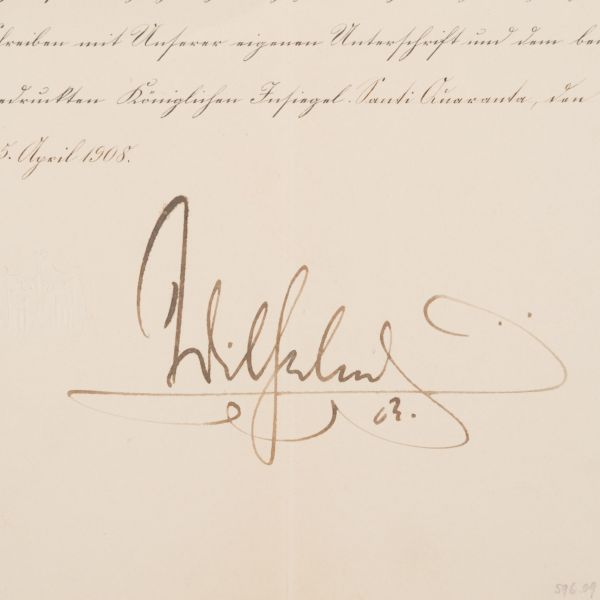 hreiben mit Unserer eigenen Unterschrift und dem bei
edruckten Königlichen Insiegel. Santi Quaranta, den
5. April 1908.
Wilhelm
R.
596.99